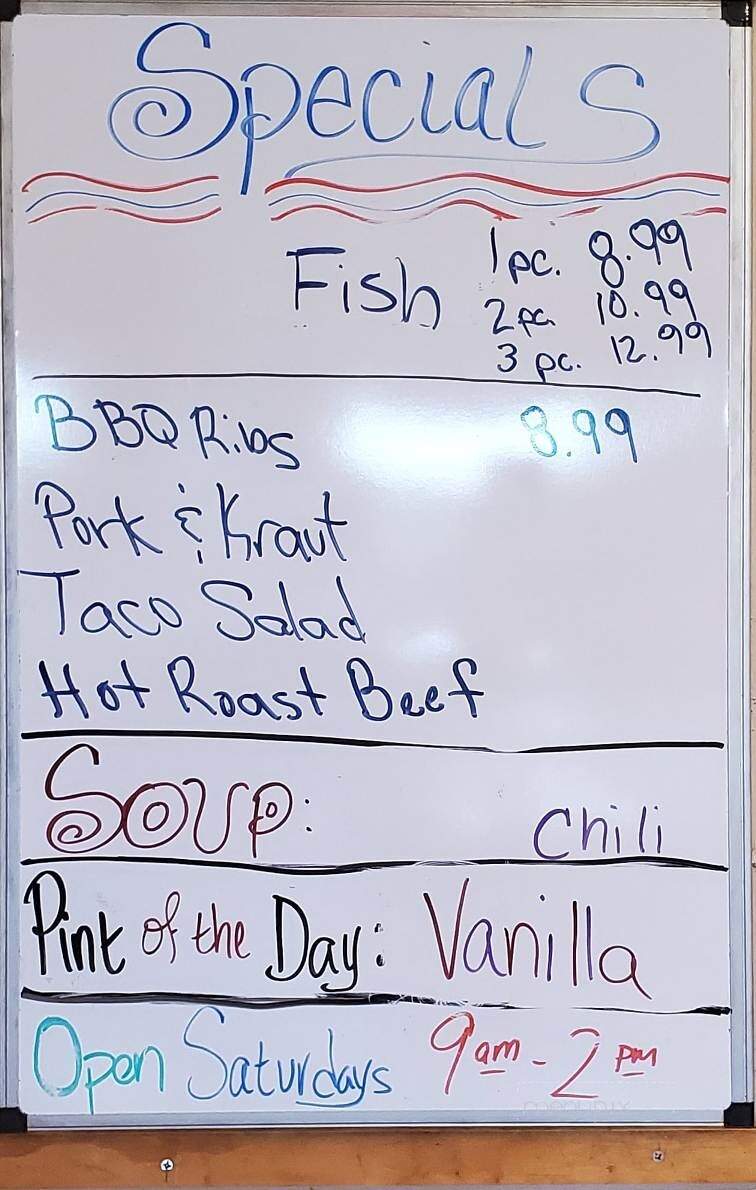 Specials
Fish 1 pc. 8.99
2 pc. 10.99
3 pc. 12.99
BBQ Ribs 8.99
Pork & Kraut
Taco Salad
Hot Roast Beef
Soup: Chili
Pint of the Day: Vanilla
Open Saturdays 9am - 2pm